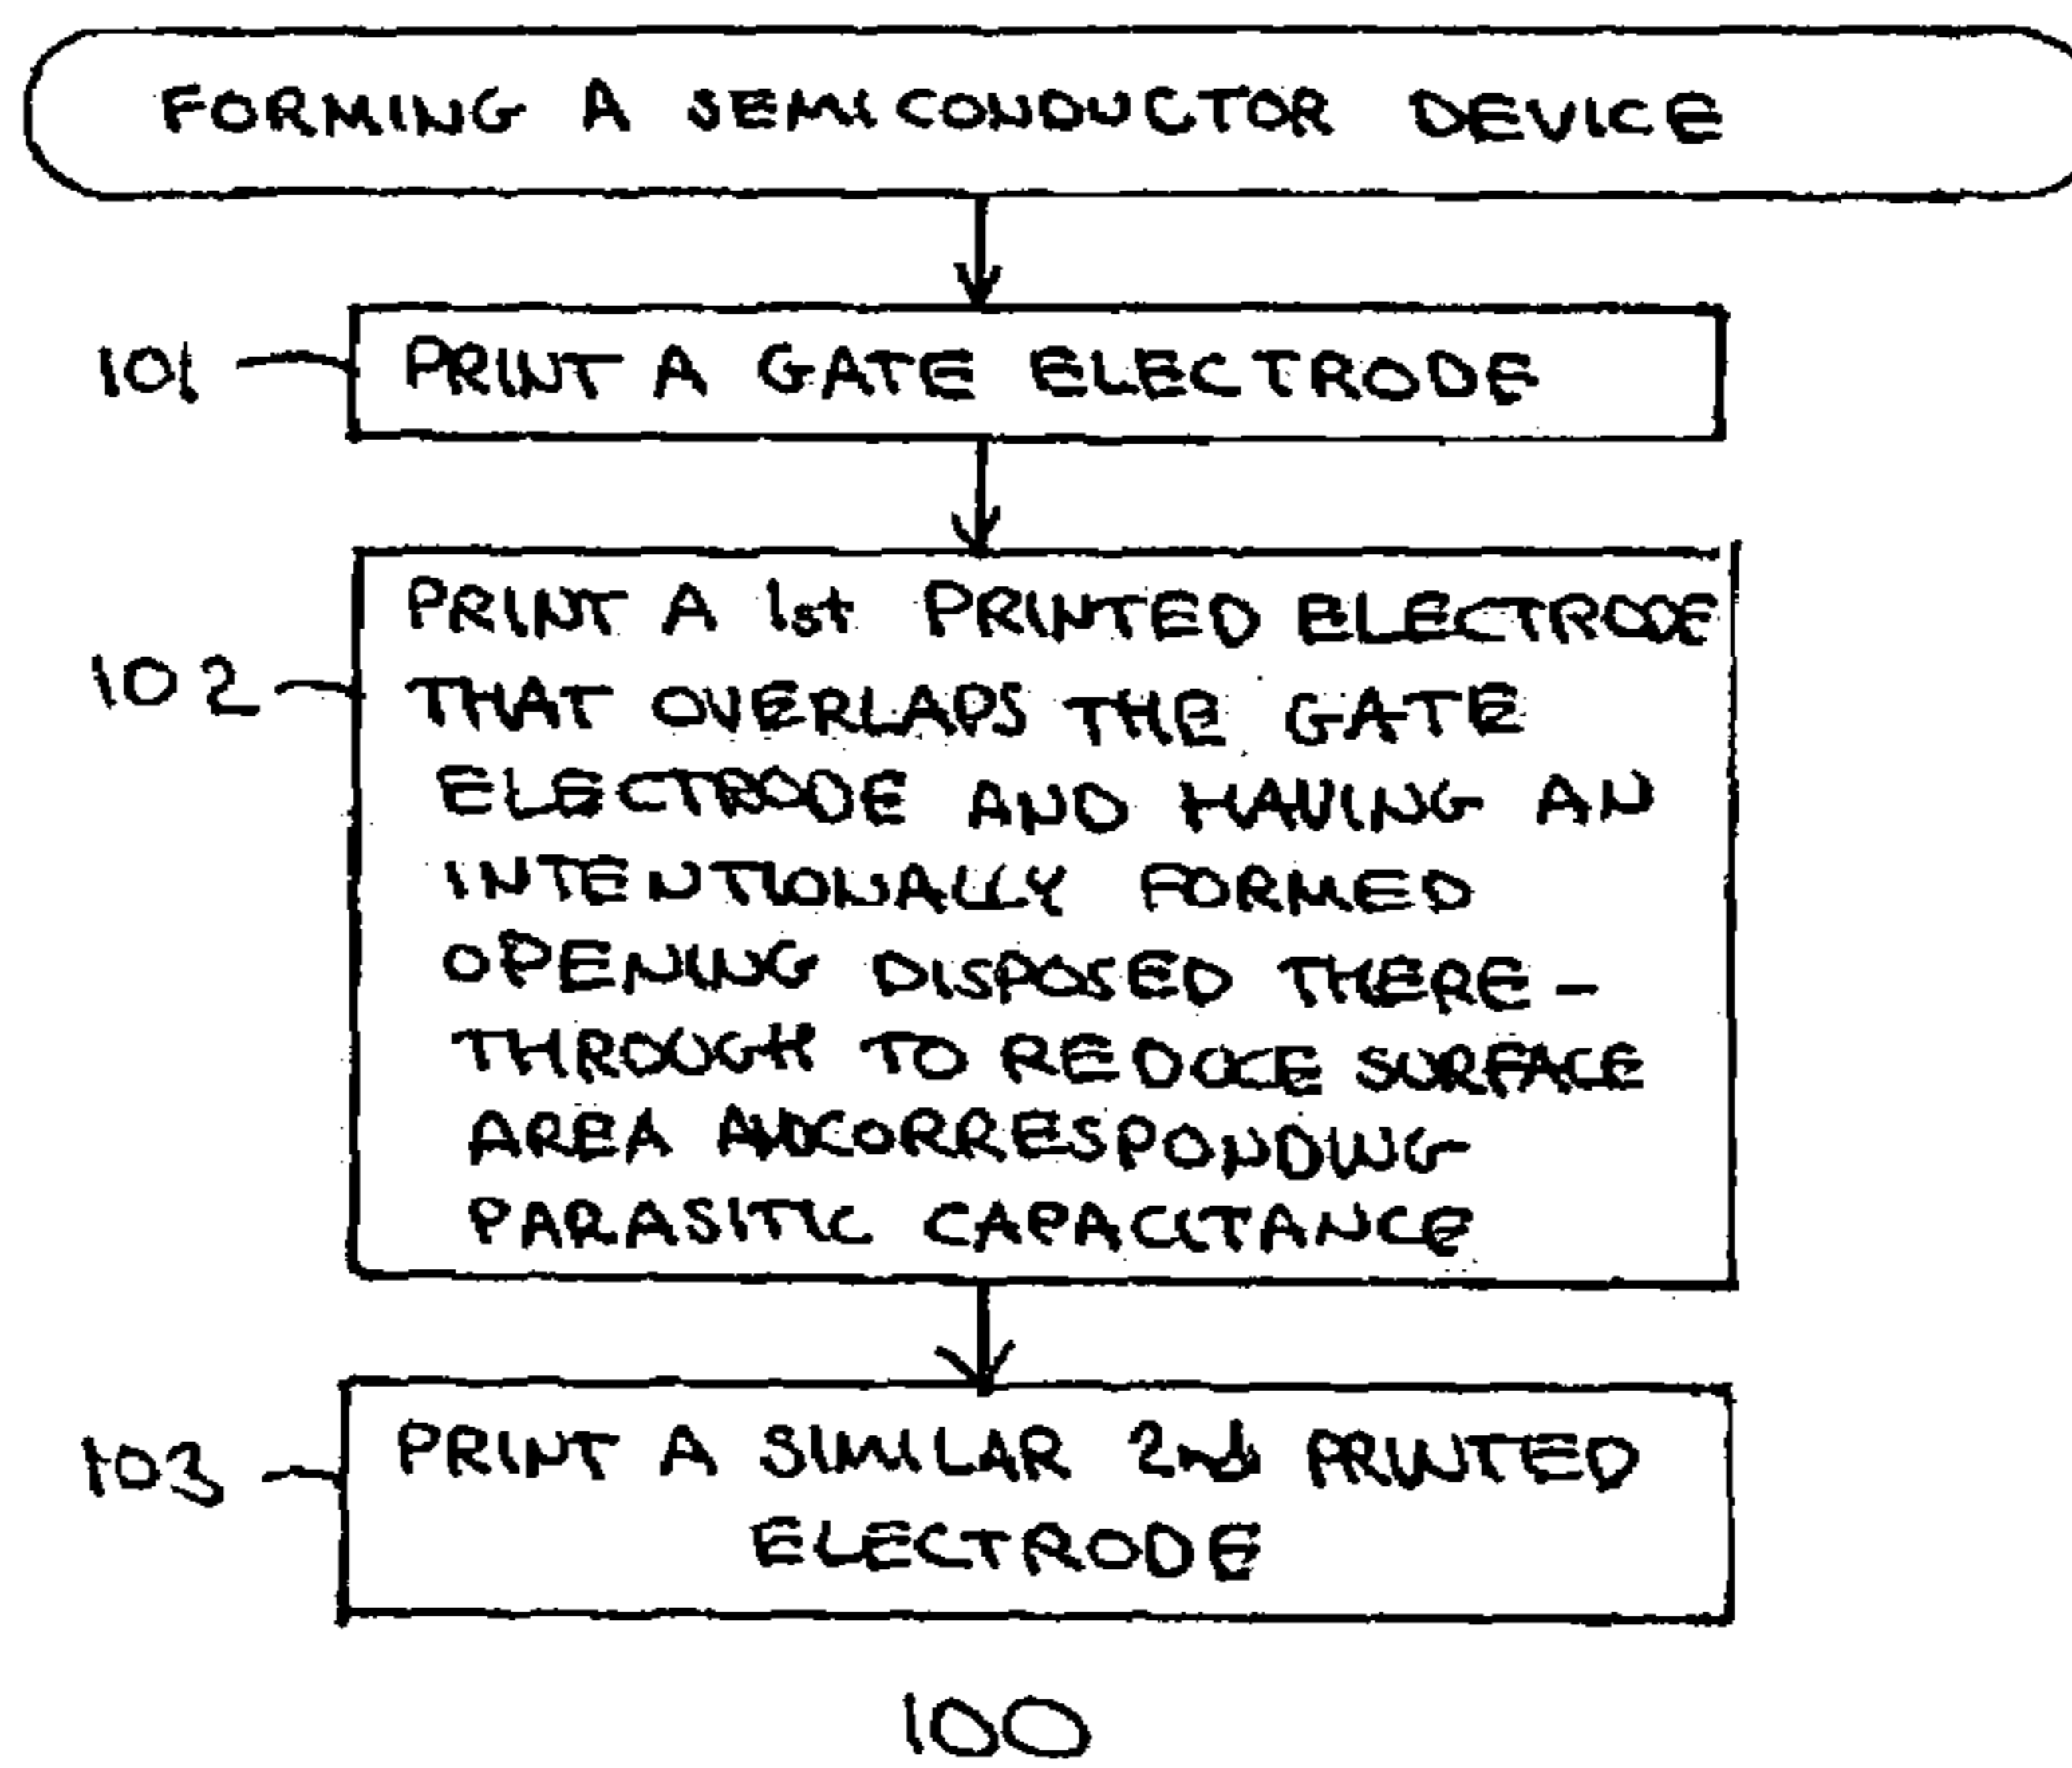 FORMING A SEMICONDUCTOR DEVICE
101
PRINT A GATE ELECTRODE
102
PRINT A 1st PRINTED ELECTRODE
THAT OVERLAPS THE GATE
ELECTRODE AND HAVING AN
INTENTIONALLY FORMED
OPENING DISPOSED THERE-
THROUGH TO REDUCE SURFACE
AREA AND CORRESPONDING
PARASITIC CAPACITANCE
103
PRINT A SIMILAR 2nd PRINTED
ELECTRODE
100